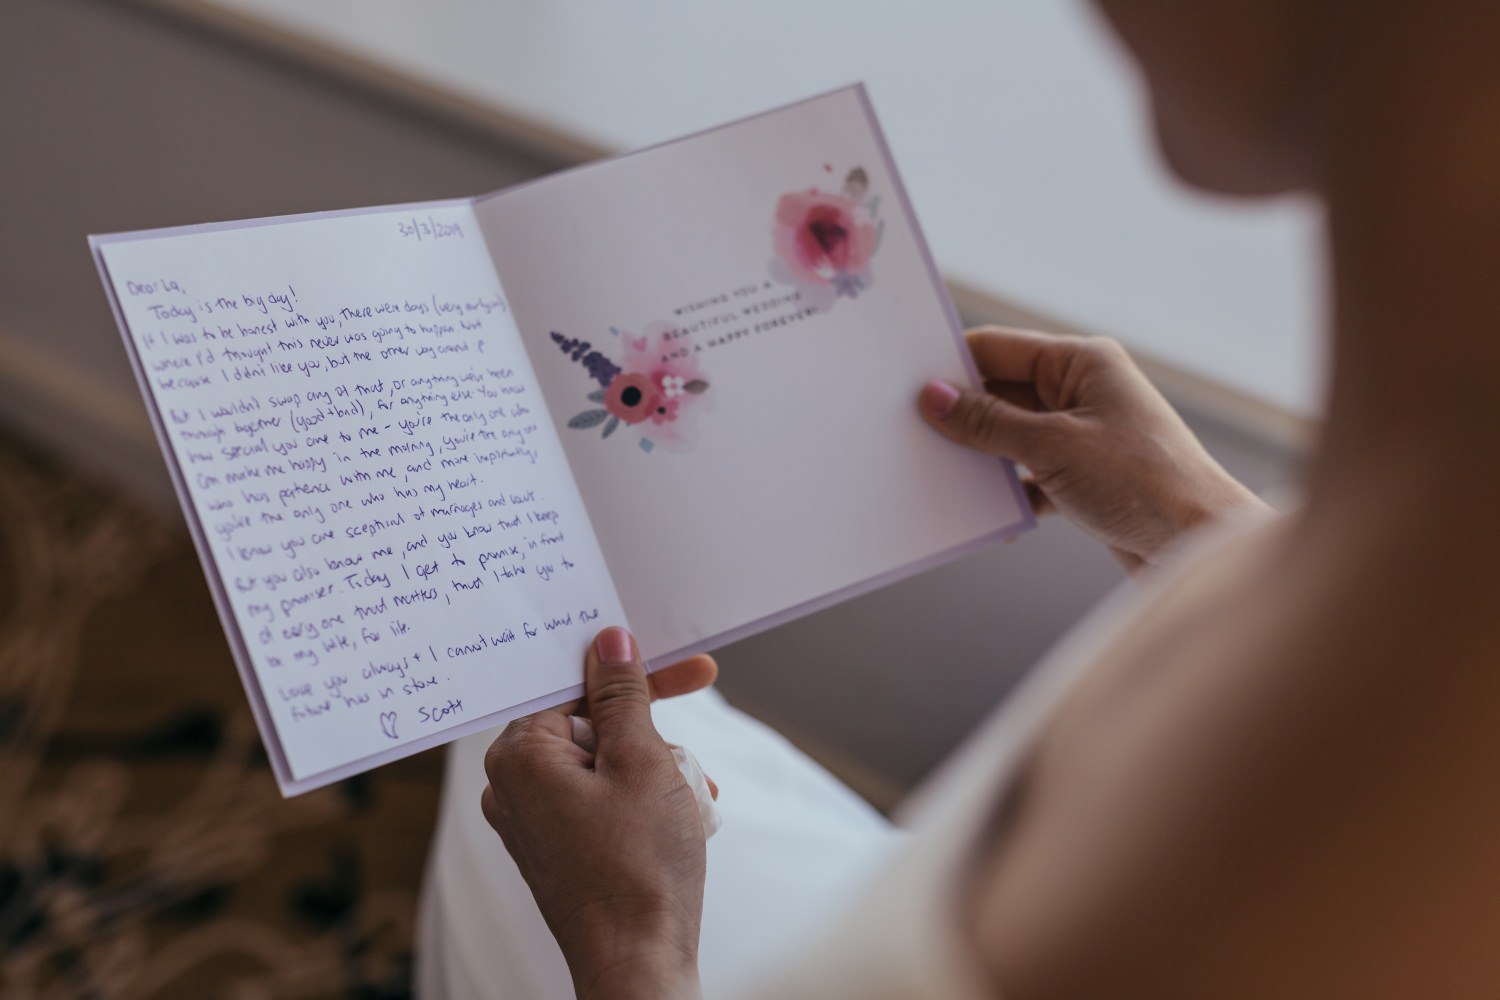 30/3/2019
Dear La,
Today is the big day!
If I was to be honest with you, there were days (very early on)
where I'd thought this never was going to happen. Not
because I didn't like you, but the other way around :p
But I wouldn't swap any of that, or anything we've been
through together (good + bad), for anything else. You know
how special you are to me - you're the only one who
can make me happy in the morning, you're the only one
who has patience with me, and more importantly,
you're the only one who has my heart.
I know you are sceptical of marriages and
But you also know me, and you know that I keep
my promises. Today I get to promise, in front
of everyone that matters, that I take you to
be my wife, for life.
Love you always + I cannot wait for what the
future has in store.
♡ Scott
WISHING YOU A
BEAUTIFUL WEDDING
AND A HAPPY FOREVER!